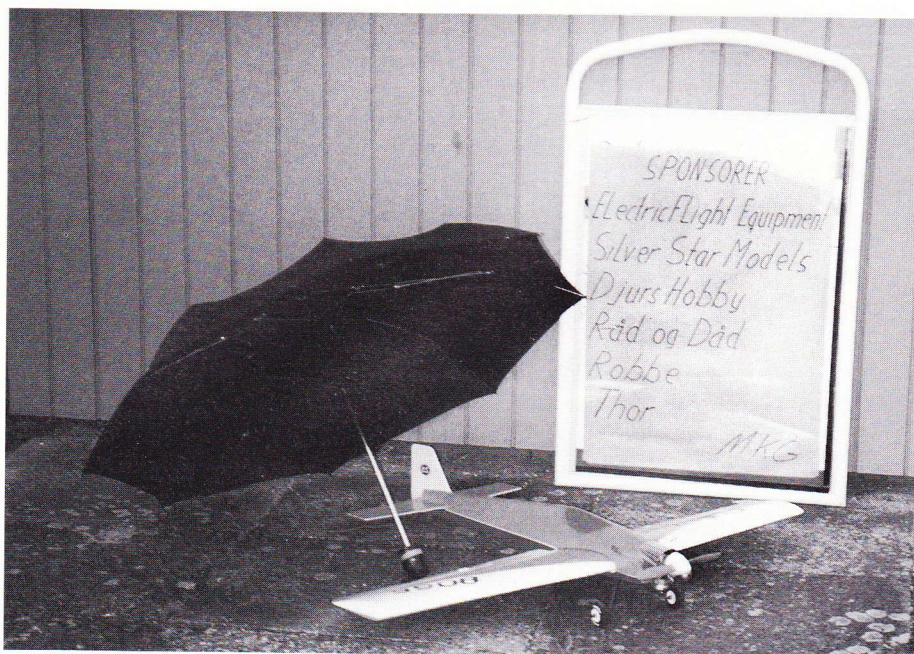 SPONSORER
ElectricFlight Equipment
Silver Star Models
Djurs Hobby
Råd og Dåd
Robbe
Thor
MKG